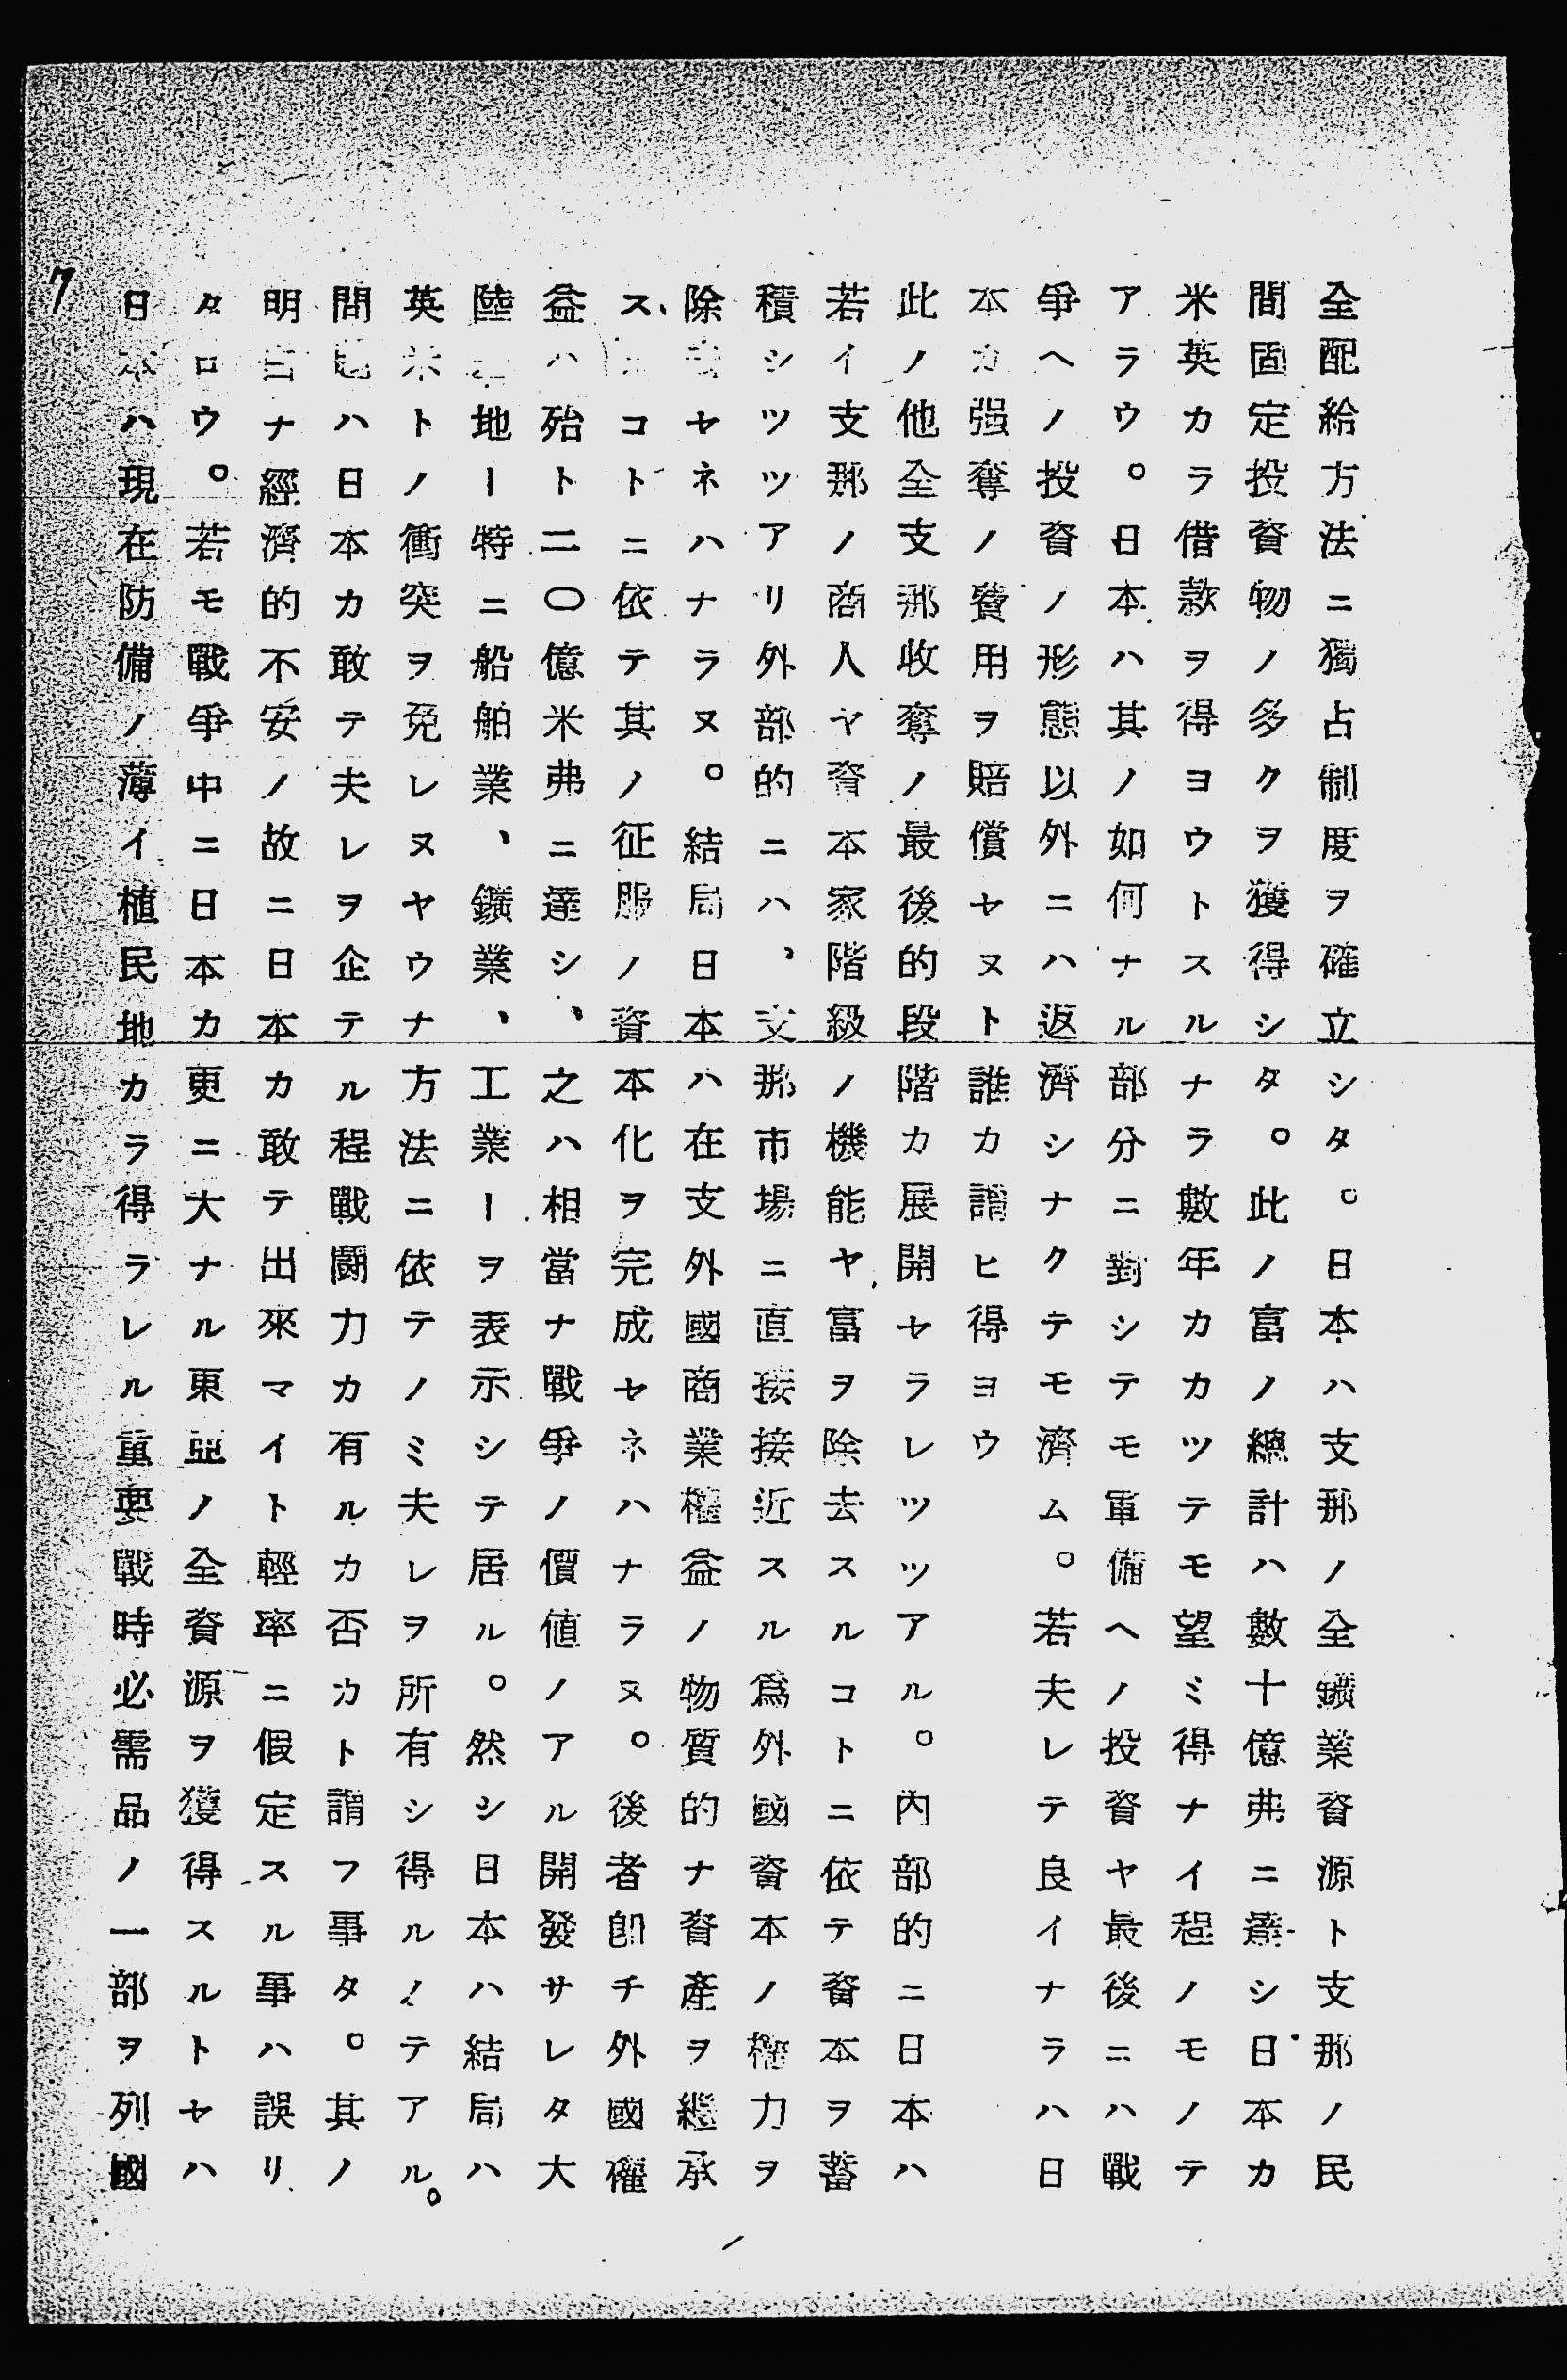 全配給方法ニ獨占制度ヲ確立シタ。日本ハ支那ノ全鑛業資源ト支那ノ民
間固定投資物ノ多クヲ獲得シタ。此ノ富ノ總計ハ數十億弗ニ達シ日本カ
米英カラ借款ヲ得ヨウトスルナラ數年カカツテモ望ミ得ナイ程ノモノテ
アラウ。日本ハ其ノ如何ナル部分ニ對シテモ軍備ヘノ投資ヤ最後ニハ戰
爭ヘノ投資ノ形態以外ニハ返濟シナクテモ濟ム。若夫レテ良イナラハ日
本カ强奪ノ費用ヲ賠償セヌト誰カ謂ヒ得ヨウ
此ノ他全支那收奪ノ最後的段階カ展開セラレツツアル。內部的ニ日本ハ
若イ支那ノ商人ヤ資本家階級ノ機能ヤ富ヲ除去スルコトニ依テ資本ヲ蓄
積シツツアリ外部的ニハ、支那市場ニ直接接近スル爲外國資本ノ權力ヲ
除去セネハナラヌ。結局日本ハ在支外國商業權益ノ物質的ナ資產ヲ繼承
スルコトニ依テ其ノ征服ノ資本化ヲ完成セネハナラヌ。後者卽チ外國權
益ハ殆ト二〇億米弗ニ達シ、之ハ相當ナ戰爭ノ價値ノアル開發サレタ大
陸地ー特ニ船舶業、鑛業、工業ーヲ表示シテ居ル。然シ日本ハ結局ハ
英米トノ衝突ヲ免レヌヤウナ方法ニ依テノミ夫レヲ所有シ得ルノテアル。
間題ハ日本カ敢テ夫レヲ企テル程戰鬪力カ有ルカ否カト謂フ事タ。其ノ
明白ナ經濟的不安ノ故ニ日本カ敢テ出來マイト輕率ニ假定スル事ハ誤リ
タロウ。若モ戰爭中ニ日本カ更ニ大ナル東亞ノ全資源ヲ獲得スルトセハ
日本ハ現在防備ノ薄イ植民地カラ得ラレル重要戰時必需品ノ一部ヲ列國
7